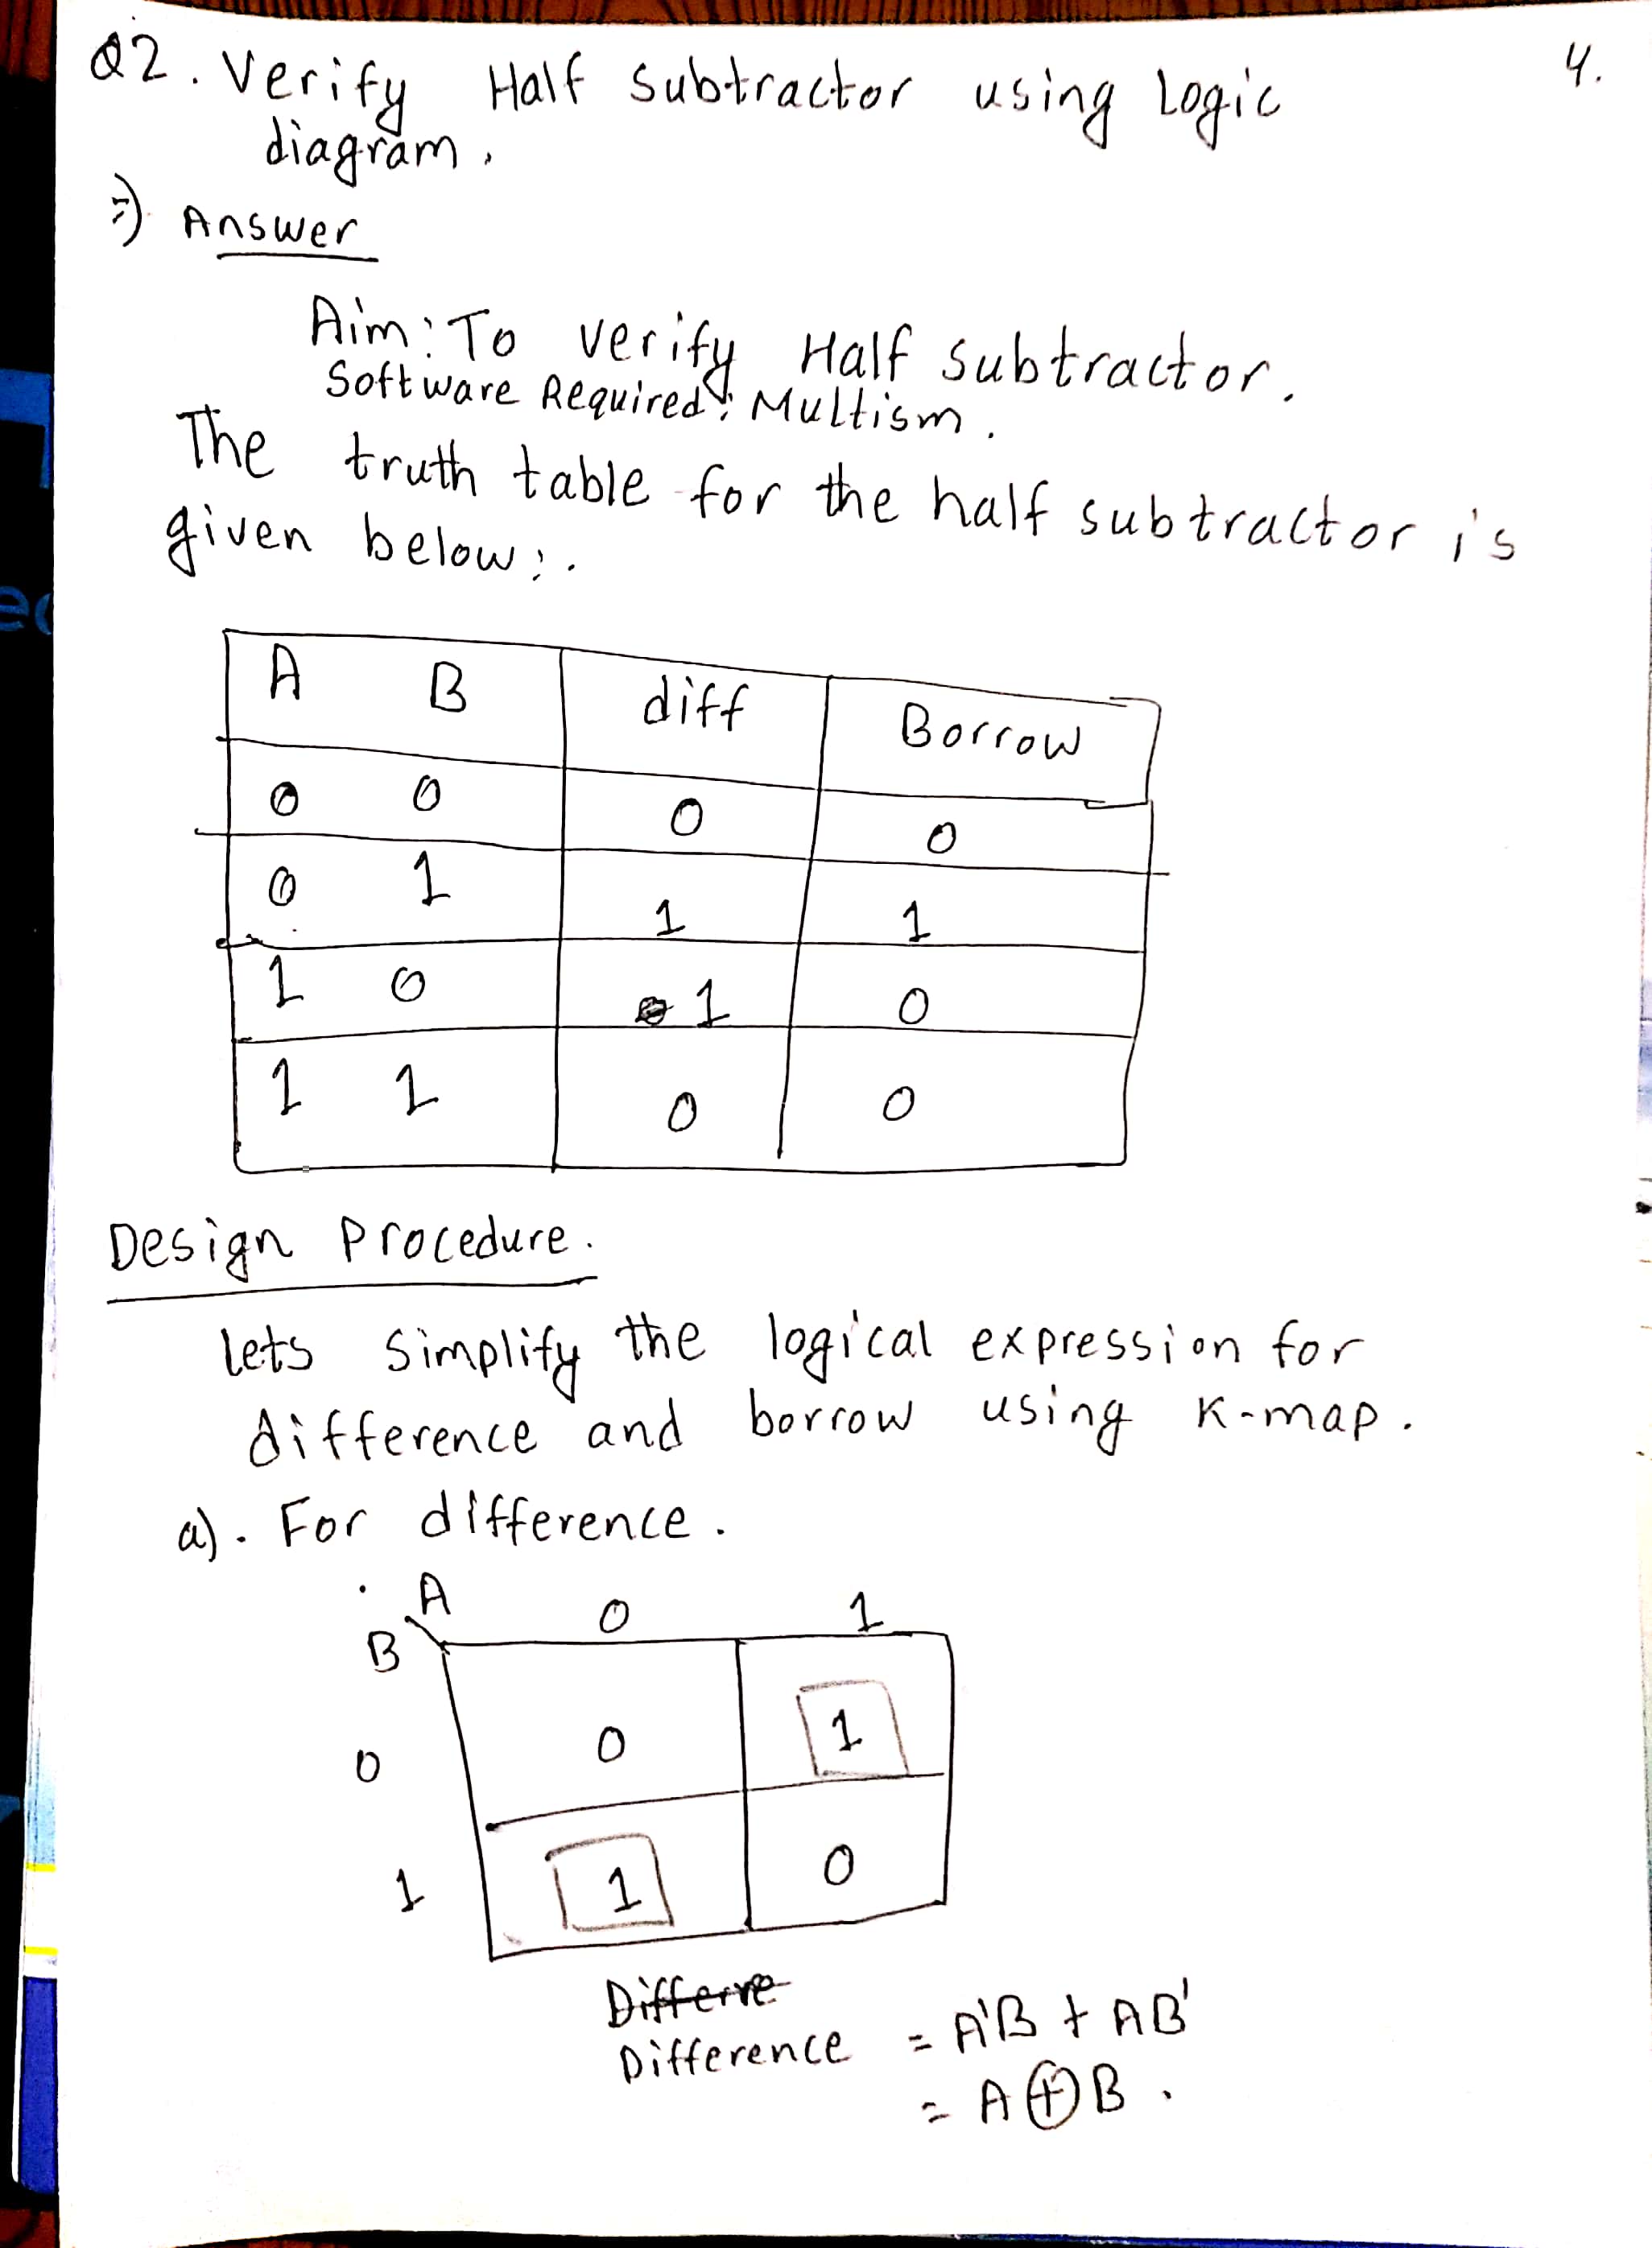 Q2. Verify Half Subtractor using Logic
diagram.
4.
=) Answer
Aim: To verify Half subtractor.
Software Required: Multism.
The truth table for the half subtractor is
given below:.
A B diff Borrow
0 0 0 0
0 1 1 1
1 0 1 0
1 1 0 0
Design Procedure.
lets simplify the logical expression for
difference and borrow using K-map.
a). For difference.
A 0 1
B
0 0 1
1 1 0
Differre
Difference = A'B + AB'
= A⊕B.